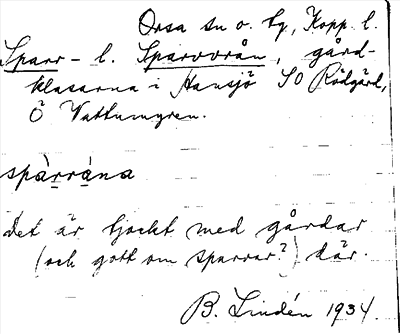 Orsa sn o. tg, Kopp. l.
Sparr- l. Sparvvrån, gård-
klasarna i Hansjö SO Rödgård,
Ö Vattumyren.
spàrrána
Det är tjockt med gårdar
(och gott om sparvar?) där.
B. Lindén 1934.